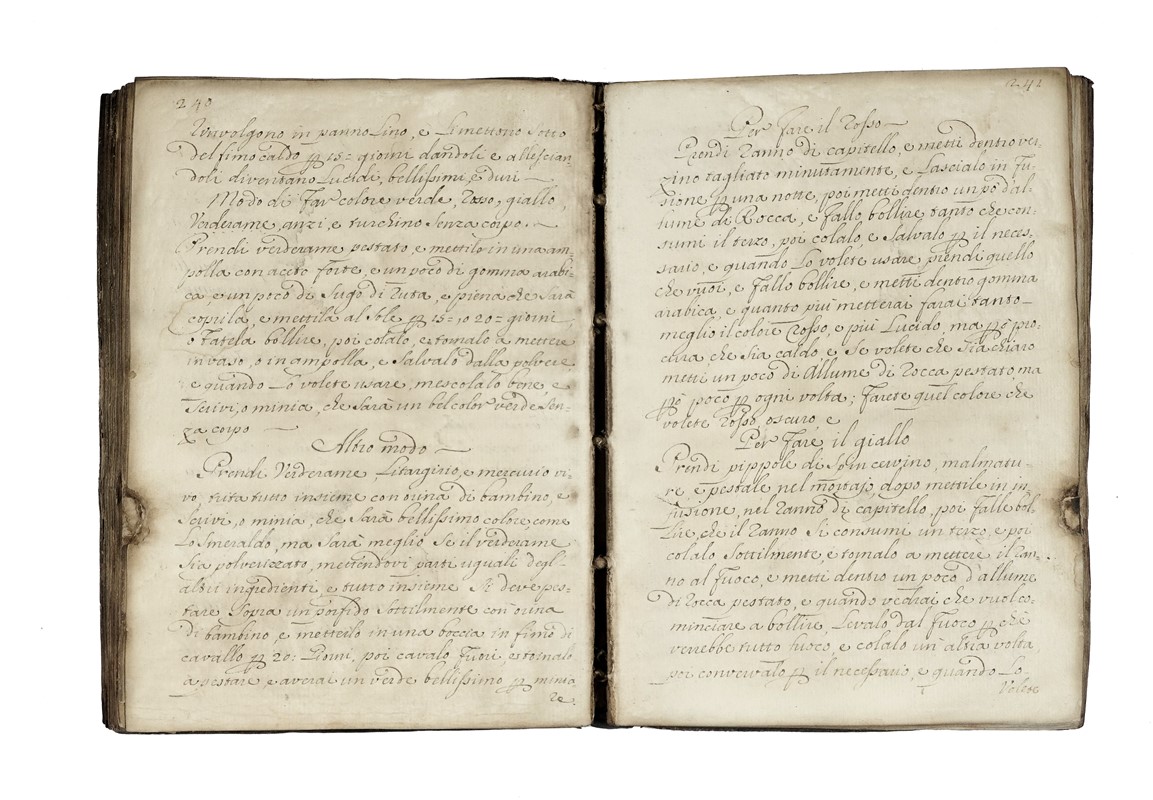 240
Rinvolgono in panno Lino, e Li mettono sotto
del fimo caldo ꝑ 15= giorni dandoli e allescian-
doli diventano Lucidi, bellissimi, e duri —
Modo di Far colore verde, Rosso, giallo,
Verderame, anzi, e turchino senza corpo. —
Prendi verderame pestato, e mettilo in una am-
polla con aceto forte, e un poco di gomma arabi-
ca, e un poco di sugo di Ruta, e piena che sarà
coprila, e mettila al sole ꝑ 15=, o 20= giorni,
o Farela bollire, poi colalo, e tornalo a mettere
in vaso, o in ampolla, e salvalo dalla polvere
e quando Lo volete usare, mescolalo bene, e
scrivi, o minia, che sarà un bel color verde sen-
za corpo —
Altro modo —
Prendi Verderame, Litargirio, e mercurio vi-
vo, trita tutto insieme con orina di bambino, e
scrivi, o minia, che sarà bellissimo colore come
Lo smeraldo, ma sarà meglio se il verderame
sia polverizzato, mettendovi parti uguali degl'
altri ingredienti, e tutto insieme si deve pes-
tare sopra un porfido sottilmente con orina
di bambino, e mettilo in una boccia in fimo di
cavallo ꝑ 20: Giorni, poi cavalo fuori, e tornalo
a pestare, e averai un verde bellissimo ꝑ minia
re.
241
Per Fare il Rosso —
Prendi Ranno di capitello, e metti dentro ver-
zino tagliato minutamente, e Lascialo in Fu-
sione ꝑ una notte, poi metti dentro un pò d'al-
lume di Rocca, e fallo bollire tanto che con-
sumi il terzo, poi colalo, e salvalo ꝑ il neces-
sario, e quando Lo volete usare prendi quello
che vuoi, e fallo bollire, e metti dentro gomma
arabica, e quanto più metterai farai tanto —
meglio il colore Rosso, e più Lucido, ma ꝑò pro-
cura che sia caldo, e se volete che sia chiaro
metti un poco di Allume di Rocca pestato ma
ꝑò poco ꝑ ogni volta; Farete quel colore che
volete Rosso, oscuro, e
Per Fare il giallo
Prendi pippole di Spin cervino, malmatu-
re, e pestale nel mortajo, dopo mettile in in
fusione, nel Ranno di capitello, poi falle bol-
lire, che il Ranno si consumi un terzo, e poi
colalo sottilmente, e tornalo a mettere il Ran-
no al fuoco, e metti dentro un poco d'allume
di Rocca pestato, e quando vedrai che vuol co-
minciare a bollire, Levalo dal fuoco ꝑ che
verebbe tutto fuoco, e colalo un' altra volta,
poi conservalo ꝑ il necessario, e quando Lo
Volete